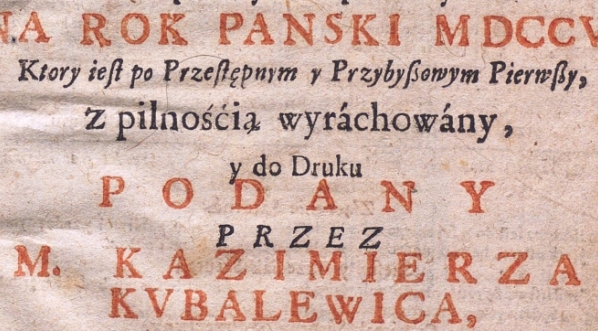 NA ROK PANSKI MDCCV
Ktory ieſt po Przeſtępnym y Przybyßowym Pierwßy,
z pilnośćią wyráchowány,
y do Druku
PODANY
PRZEZ
M. KAZIMIERZA
KVBALEWICA,